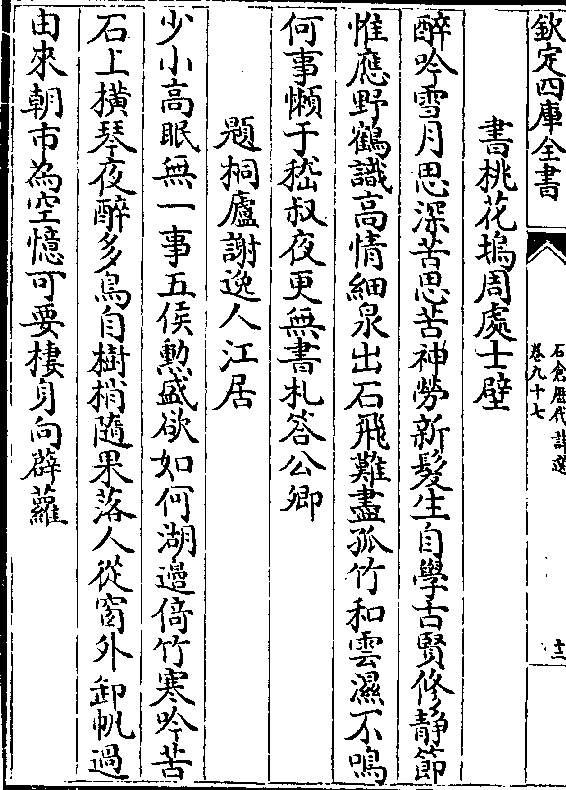 欽定四庫全書
石倉歷代詩選
卷九十七
十二
書桃花塢周處士壁
醉吟雪月思深苦思苦神勞新髮生自學古賢修静節
惟應野鶴識高情細泉出石飛難盡孤竹和雲濕不鳴
何事懶于嵇叔夜更無書札答公卿
題桐廬謝逸人江居
少小高眠無一事五侯勲盛欲如何湖邊倚竹寒吟苦
石上横琴夜醉多鳥自樹梢隨果落人從窗外卸帆過
由來朝市為空憶可要棲身向薜蘿